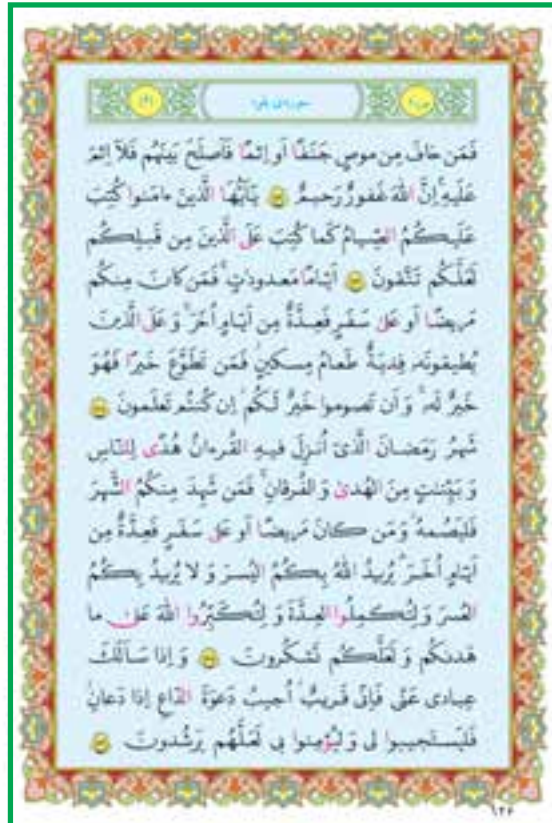 سوره‌ی بقره
فَمَن خافَ مِن موصٍ جَنَفًا أَو إِثمًا فَأَصلَحَ بَينَهُم فَلا إِثمَ
عَلَيهِ إِنَّ اللهَ غَفورٌ رَحيمٌ يَأَيُّهَا الَّذينَ ءامَنوا كُتِبَ
عَلَيكُمُ الصِّيامُ كَما كُتِبَ عَلَى الَّذينَ مِن قَبلِكُم
لَعَلَّكُم تَتَّقونَ أَيّامًا مَعدوداتٍ فَمَن كانَ مِنكُم
مَريضًا أَو عَلى سَفَرٍ فَعِدَّةٌ مِن أَيّامٍ أُخَرَ وَ عَلَى الَّذينَ
يُطيقونَه فِديَةٌ طَعامُ مِسكينٍ فَمَن تَطَوَّعَ خَيرًا فَهُوَ
خَيرٌ لَه وَ أَن تَصوموا خَيرٌ لَكُم إِن كُنتُم تَعلَمونَ
شَهرُ رَمَضانَ الَّذى أُنزِلَ فيهِ القُرءانُ هُدًى لِلنّاسِ
وَ بَيِّنٰتٍ مِنَ الهُدىٰ وَ الفُرقانِ فَمَن شَهِدَ مِنكُمُ الشَّهرَ
فَليَصُمهُ وَ مَن كانَ مَريضًا أَو عَلى سَفَرٍ فَعِدَّةٌ مِن
أَيّامٍ أُخَرَ يُريدُ اللهُ بِكُمُ اليُسرَ وَ لا يُريدُ بِكُمُ
العُسرَ وَ لِتُكمِلُوا العِدَّةَ وَ لِتُكَبِّرُوا اللهَ عَلى ما
هَدىٰكُم وَ لَعَلَّكُم تَشكُرونَ وَ إِذا سَأَلَكَ
عِبادى عَنّى فَإِنّى قَريبٌ أُجيبُ دَعوَةَ الدّاعِ إِذا دَعانِ
فَليَستَجيبوا لى وَ ليُؤمِنوا بى لَعَلَّهُم يَرشُدونَ